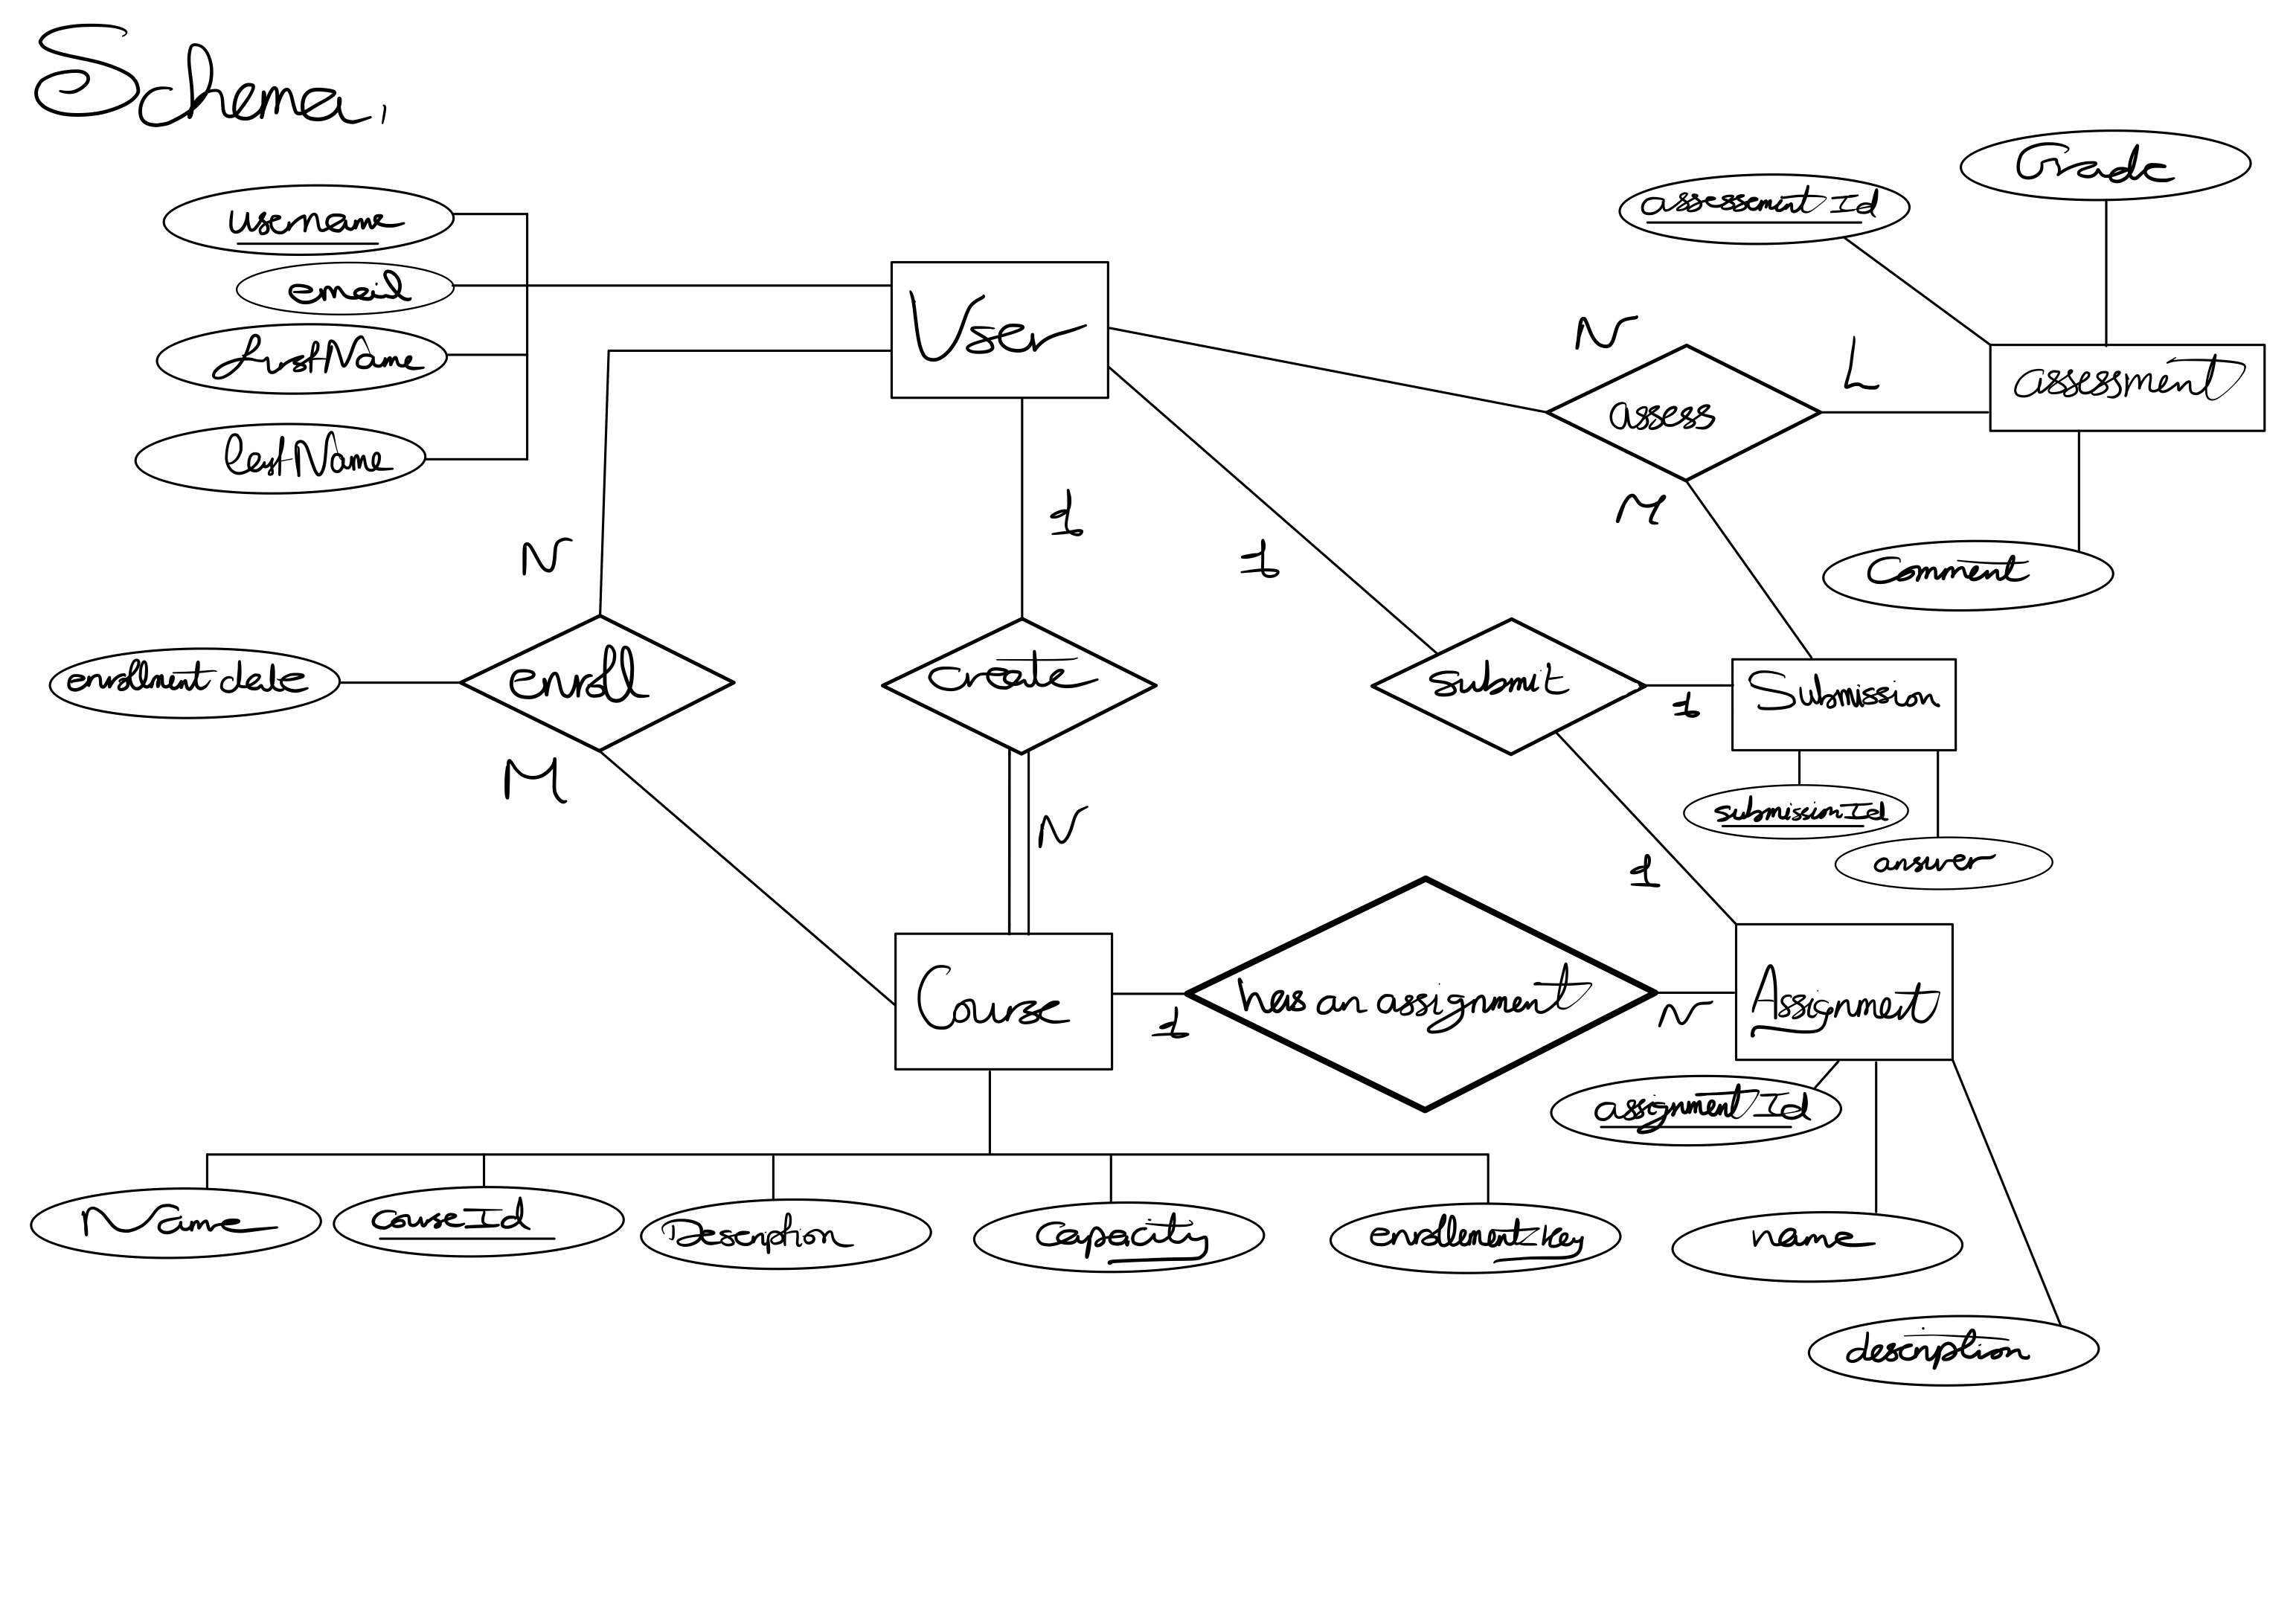 Schema,
username
email
firstName
lastName
User
assessement Id
Grade
N
L
assess
assessment
M
Comment
N
1
1
enrollment date
enroll
create
submit
1
Submission
submissionId
answer
M
N
1
Course
1
has an assignment
N
Assignment
assignment Id
Name
courseId
Description
Capacity
enrollement key
name
description